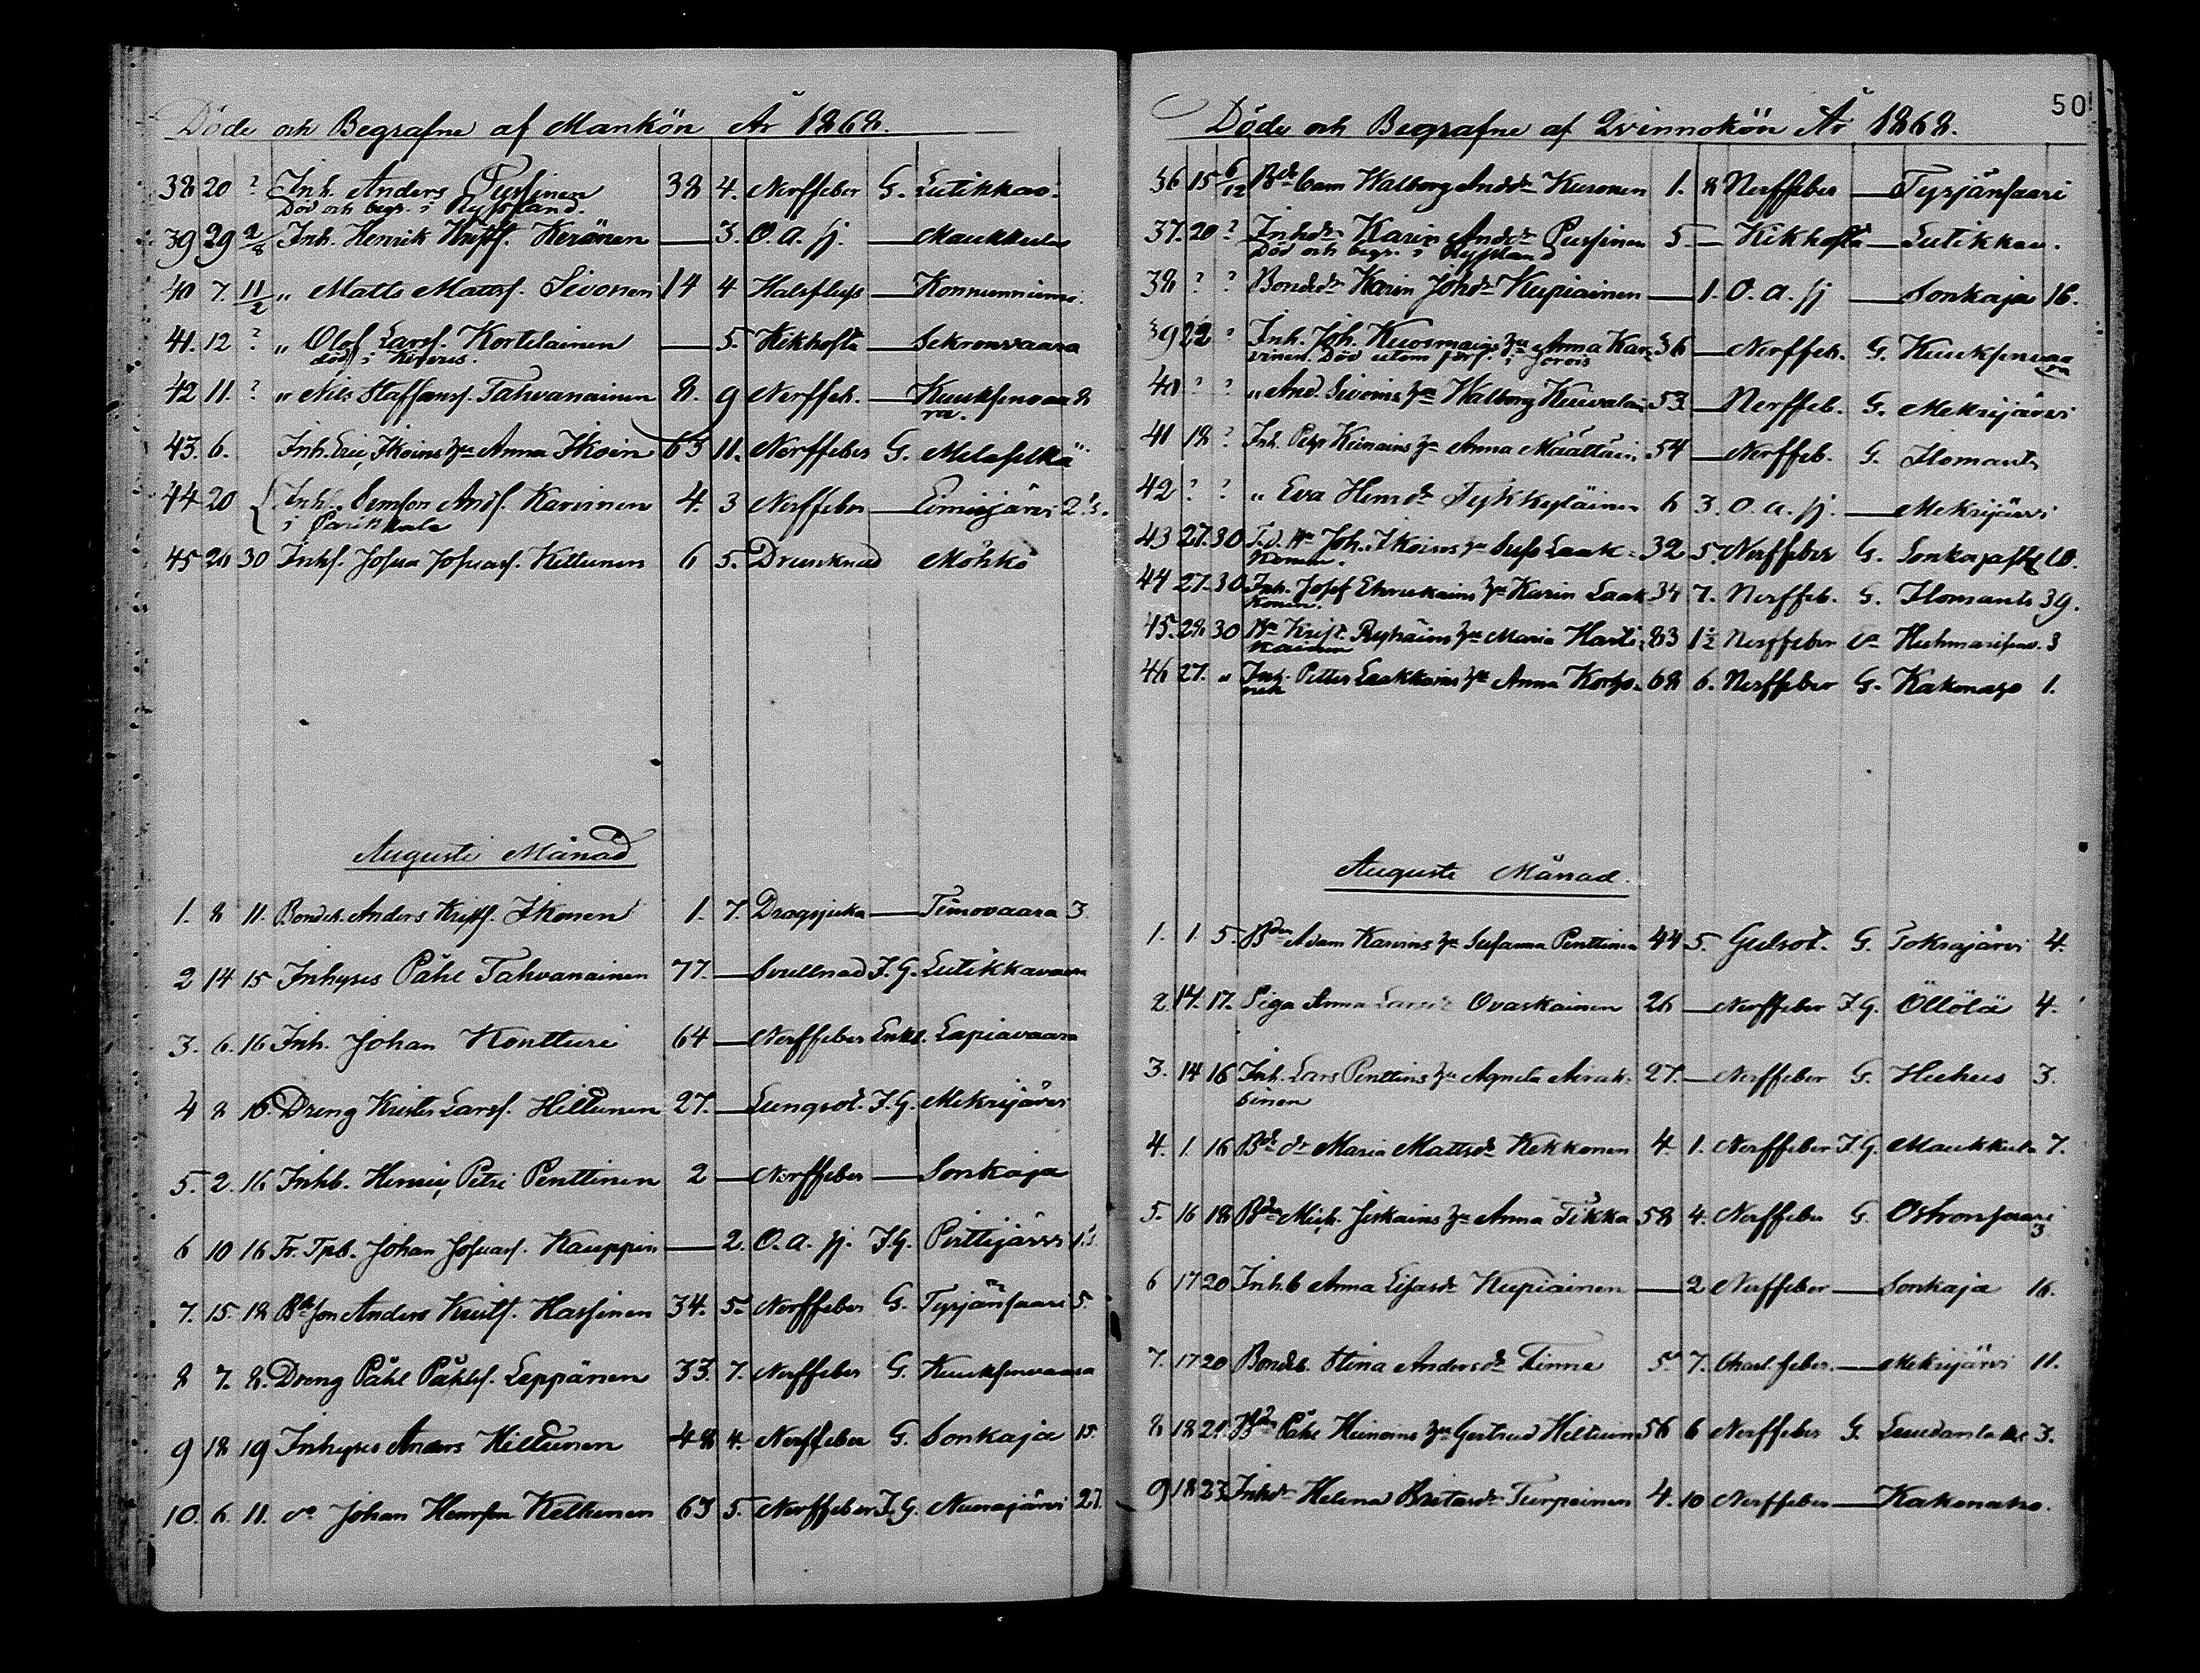 Döde och Begrafne af Mankön År 1868.
38 20 ? Inh. Anders Pussinen 38 4. Nerffeber G. Lutikkav.
Död och begr. i Ryssland.
39 29 2/8 Inh. Henrik Kristf. Keränen — 3. O. a. sj. — Maukkula
40 7. 11/2 „ Matts Mattsf. Sivonen 14 4 Halsfluss — Konnunniemi
41. 12 ? „ Olof Larsf. Kortelainen — 5. Kikhosta — Sekronvaara
död i
42 11. ? „ Nils Staffansf. Tahvanainen 8. 9 Nerffeb. — Kuuksenvaa 8
ra.
43. 6. Inh. Eric Ikoins h:u Anna Ikoin 63 11. Nerffeber G. Melaselkä
44 20 Inh. Semson Andf. Karvinen 4. 3 Nerffeber — Liminjärvi 2.
i Parikkala
45 20 30 Inhs. Josua Josuasf. Kettunen 6 5. Drunknad Möhkö
Augusti Månad
1. 8 11. Bondes. Anders Kristf. Ikonen 1. 7. Dragsjuka — Timovaara 3
2 14 15 Inhyses Påhl Tahvanainen 77. — Svullnad I. G. Lutikkavaara
3. 6. 16 Inh. Johan Kontturi 64 — Nerffeber Enkl. Lapiavaara
4 8 16 Dreng Krister Larsf. Hiltunen 27. — Lungsot. I. G. Mekrijärvi
5. 2. 16 Inhb. Henric Petri Penttinen 2 — Nerffeber — Sonkaja
6 10 16 Fr. Tpb. Johan Josuasf. Kauppin — 2. O. a. sj. I. G. Perttijärvi 1.
7. 15. 18 Bdeson Anders Kristf. Hassinen 34. 5. Nerffeber G. Tyrjänsaari 5.
8 7. 8. Dreng Påhl Påhlsf. Leppänen 33. 7. Nerffeber G. Kuuksenvaara
9 18 19 Inhyses Anders Hiltunen 48 4. Nerffeber G. Sonkaja 15.
10. 6. 11. do Johan Henrsson Kelkonen 63 5. Nerffeber I. G. Nuorajärvi 27.
50
Döde och Begrafne af Qvinnokön År 1868.
36 15 6/12 Bdebarn Walborg Andsdr Kuronen 1. 8 Nerffeber — Tyrjänsaari
37. 20 ? Inhdr Karin Andsdr Pussinen 5 — Kikhosta — Lutikkav.
Död och begr. i Ryssland
38 ? ? Bondedr Karin Johdr Kupiainen — 1. O. a. sj — Sonkaja 16.
39 22 ? Inh. Joh. Kuosmains h:u Anna Kar- 36 — Nerffeb. G. Kuuksenvaa
vinen. Död utom förs. i Jorois ra
40 ? ? „ And. Sivoins h:u Walborg Kuvalain 53 — Nerffeb. G. Mekrijärvi
41 18 ? Inh. Petr. Keinains h:u Anna Määttäin 54 — Nerffeb. G. Ilomants
42 ? ? „ Eva Henrdr Tykkyläinen 6 3. O. a. sj. — Mekrijärvi
43 27. 30 Joh. Ikoins h:u Susa Laak- 32 5. Nerffeber G. Sonkaja 10.
konen.
44 27. 30 Inh. Josef Ehrukains h:u Karin Laak- 34 7. Nerffeb. G. Ilomants 39.
konen.
45. 28 30 Krist. Ryhäins h:u Maria Harti- 83 1½ Nerffeber do Huhmarisenv. 3
kainen
46 27. „ Inh. Petter Laakkoins h:u Anna Korho- 68 6. Nerffeber G. Kakonaho 1.
nen
Augusti Månad.
1. 1. 5. Bden Adam Karvins h:u Susanna Penttinen 44 5. Gulsot. G. Tokrajärvi 4.
2 14. 17. Piga Anna Larsdr Ovaskainen 26 — Nerffeber I. G. Öllölä 4.
3. 14 16 Inh. Lars Penttins h:u Agneta Airak- 27. — Nerffeber G. Huhus 3.
sinen
4. 1. 16 Bdedr Maria Mattsdr Kekkonen 4. 1. Nerffeber I. G. Maukkula 7.
5. 16 18 Bden Mich. Jeskains h:u Anna Tikka 58 4. Nerffeber G. Oskronsaari
3
6 17 20 Inhb Anna Lisasdr Kupiainen — 2 Nerffeber — Sonkaja 16.
7. 17 20 Bondeb. Stina Andersdr Tinne 5 7. Charl. feber. — Mekrijärvi 11.
8 18 21. Bden Påhl Heinoins h:u Gertrud Hiltuin 56 6 Nerffeber G. 3.
9 18 23 Inhdr Helena Britasdr Turpeinen 4. 10 Nerffeber — Kakonaho.